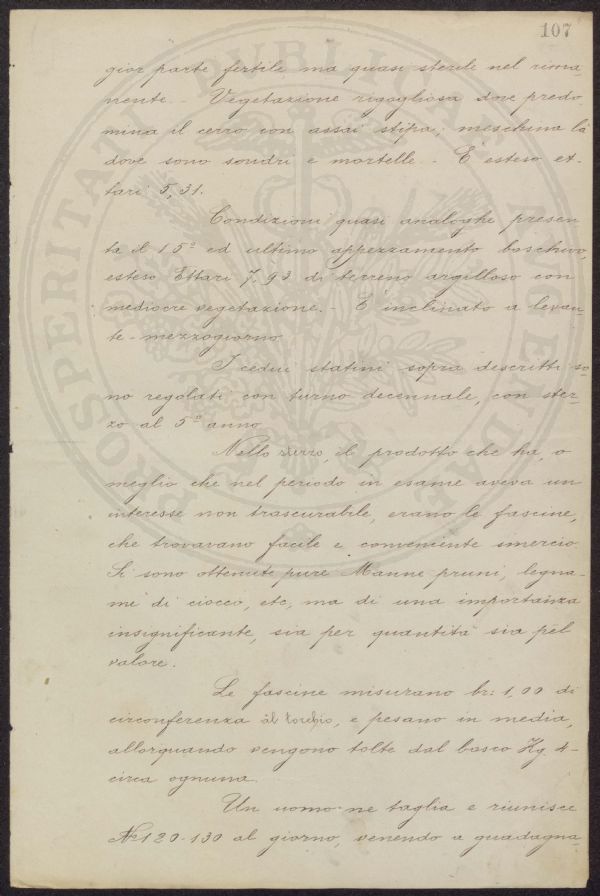 107
gior parte fertile ma quasi sterile nel rima-
nente. - Vegetazione rigogliosa dove predo-
mina il cerro con assai stipa; meschina là
dove sono sondri e mortelle. - È esteso et-
tari 5,31.
Condizioni quasi analoghe presen-
ta il 15º ed ultimo appezzamento boschivo,
esteso Ettari 7,93 di terreno argilloso con
mediocre vegetazione. - È inclinato a levan-
te-mezzogiorno
I cedui statini sopra descritti so-
no regolati con turno decennale, con ster-
zo al 5º anno
Nello sterzo, il prodotto che ha, o
meglio che nel periodo in esame aveva un
interesse non trascurabile, erano le fascine,
che trovavano facile e conveniente smercio.
Si sono ottenute pure Manne pruni, legna-
me di ciocco, etc, ma di una importanza
insignificante, sia per quantità sia pel
valore.
Le fascine misurano br: 1,00 di
circonferenza al torchio, e pesano in media,
allorquando vengono tolte dal bosco Kg. 4-
circa ognuna.
Un uomo ne taglia e riunisce
Nº 120-130 al giorno, venendo a guadagna-
PROSPERITATI PVBLICAE AVGENDAE